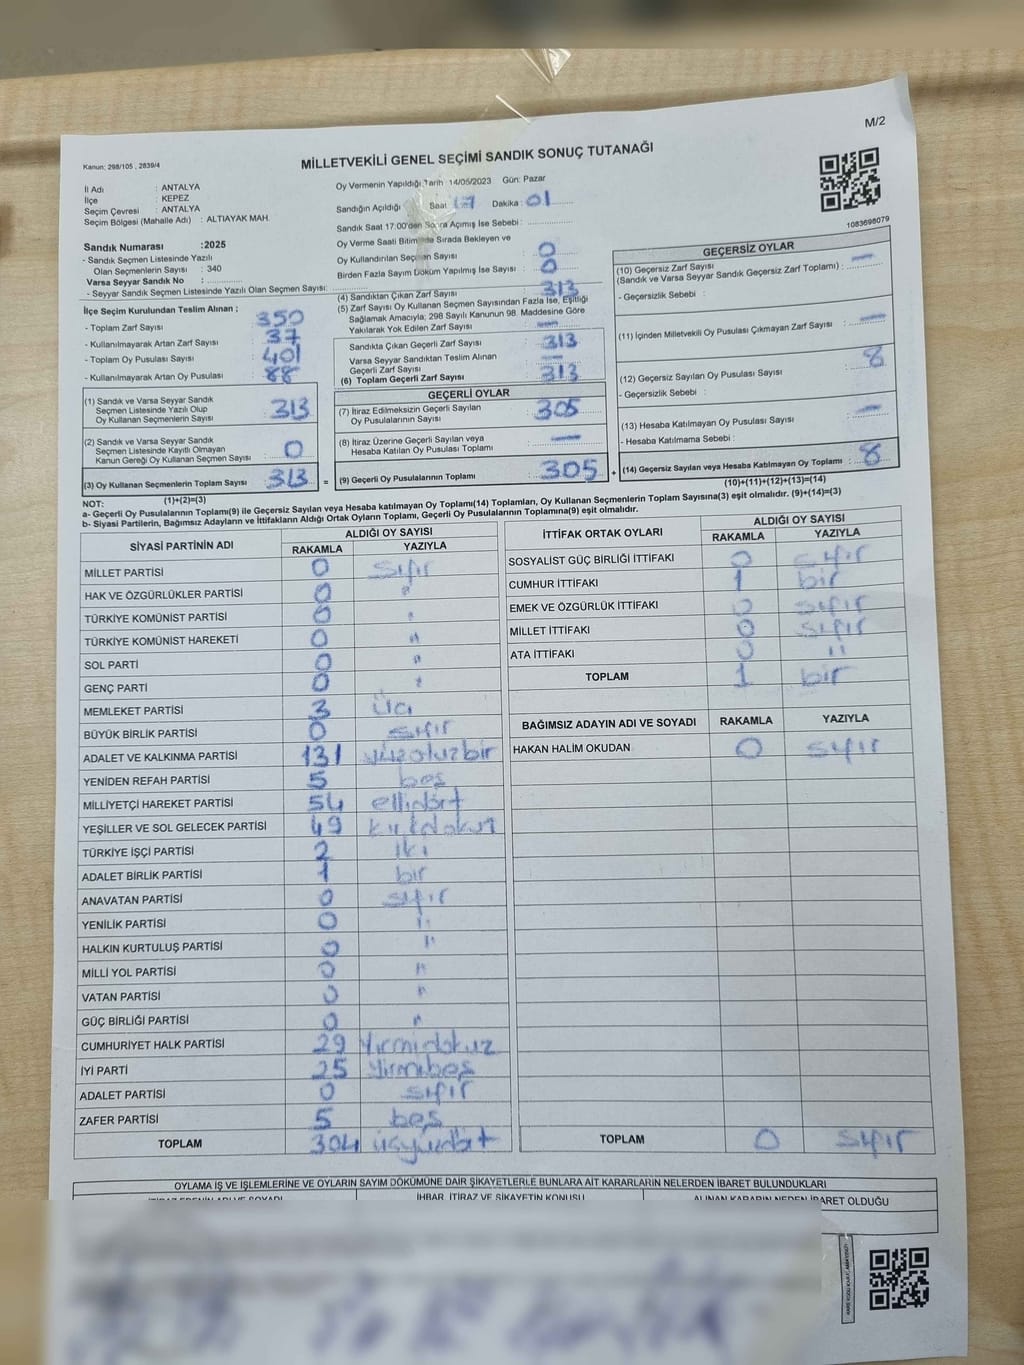 M/2
Kanun: 298/105 , 2839/4
MİLLETVEKİLİ GENEL SEÇİMİ SANDIK SONUÇ TUTANAĞI
İl Adı : ANTALYA
İlçe : KEPEZ
Seçim Çevresi : ANTALYA
Seçim Bölgesi (Mahalle Adı) : ALTIAYAK MAH.
Oy Vermenin Yapıldığı Tarih 14/05/2023 Gün: Pazar
Sandığın Açıldığı Saat 17 Dakika : 01
Sandık Saat 17:00'den Sonra Açımış İse Sebebi :
Oy Verme Saati Bitiminde Sırada Bekleyen ve
Oy Kullandırılan Seçmen Sayısı : 0
Birden Fazla Sayım Döküm Yapılmış İse Sayısı : 0
1083698079
Sandık Numarası :2025
- Sandık Seçmen Listesinde Yazılı
Olan Seçmenlerin Sayısı : 340
Varsa Seyyar Sandık No :
- Seyyar Sandık Seçmen Listesinde Yazılı Olan Seçmen Sayısı:
İlçe Seçim Kurulundan Teslim Alınan ;
- Toplam Zarf Sayısı : 350
- Kullanılmayarak Artan Zarf Sayısı : 37
- Toplam Oy Pusulası Sayısı : 401
- Kullanılmayarak Artan Oy Pusulası : 88
(1) Sandık ve Varsa Seyyar Sandık
Seçmen Listesinde Yazılı Olup
Oy Kullanan Seçmenlerin Sayısı : 313
(2) Sandık ve Varsa Seyyar Sandık
Seçmen Listesinde Kayıtlı Olmayan
Kanun Gereği Oy Kullanan Seçmen Sayısı : 0
(3) Oy Kullanan Seçmenlerin Toplam Sayısı : 313 =
(1)+(2)=(3)
(4) Sandıktan Çıkan Zarf Sayısı : 313
(5) Zarf Sayısı Oy Kullanan Seçmen Sayısından Fazla İse, Eşitliği
Sağlamak Amacıyla; 298 Sayılı Kanunun 98. Maddesine Göre
Yakılarak Yok Edilen Zarf Sayısı : —
Sandıkta Çıkan Geçerli Zarf Sayısı : 313
Varsa Seyyar Sandıktan Teslim Alınan
Geçerli Zarf Sayısı : —
(6) Toplam Geçerli Zarf Sayısı : 313
GEÇERLİ OYLAR
(7) İtiraz Edilmeksizin Geçerli Sayılan
Oy Pusulalarının Sayısı : 305
(8) İtiraz Üzerine Geçerli Sayılan veya
Hesaba Katılan Oy Pusulası Toplamı : —
(9) Geçerli Oy Pusulalarının Toplamı : 305 +
GEÇERSİZ OYLAR
(10) Geçersiz Zarf Sayısı : —
(Sandık ve Varsa Seyyar Sandık Geçersiz Zarf Toplamı) :
- Geçersizlik Sebebi :
(11) İçinden Milletvekili Oy Pusulası Çıkmayan Zarf Sayısı : —
(12) Geçersiz Sayılan Oy Pusulası Sayısı : 8
- Geçersizlik Sebebi :
(13) Hesaba Katılmayan Oy Pusulası Sayısı : —
- Hesaba Katılmama Sebebi :
(14) Geçersiz Sayılan veya Hesaba Katılmayan Oy Toplamı : 8
(10)+(11)+(12)+(13)=(14)
NOT:
a- Geçerli Oy Pusulalarının Toplamı(9) ile Geçersiz Sayılan veya Hesaba katılmayan Oy Toplamı(14) Toplamları, Oy Kullanan Seçmenlerin Toplam Sayısına(3) eşit olmalıdır. (9)+(14)=(3)
b- Siyasi Partilerin, Bağımsız Adayların ve İttifakların Aldığı Ortak Oyların Toplamı, Geçerli Oy Pusulalarının Toplamına(9) eşit olmalıdır.
SİYASİ PARTİNİN ADI ALDIĞI OY SAYISI
RAKAMLA YAZIYLA
MİLLET PARTİSİ 0 sıfır
HAK VE ÖZGÜRLÜKLER PARTİSİ 0 "
TÜRKİYE KOMÜNİST PARTİSİ 0 "
TÜRKİYE KOMÜNİST HAREKETİ 0 "
SOL PARTİ 0 "
GENÇ PARTİ 0 "
MEMLEKET PARTİSİ 3 üç
BÜYÜK BİRLİK PARTİSİ 0 sıfır
ADALET VE KALKINMA PARTİSİ 131 yüzotuzbir
YENİDEN REFAH PARTİSİ 5 beş
MİLLİYETÇİ HAREKET PARTİSİ 54 ellidört
YEŞİLLER VE SOL GELECEK PARTİSİ 49 kırkdokuz
TÜRKİYE İŞÇİ PARTİSİ 2 iki
ADALET BİRLİK PARTİSİ 1 bir
ANAVATAN PARTİSİ 0 sıfır
YENİLİK PARTİSİ 0 "
HALKIN KURTULUŞ PARTİSİ 0 "
MİLLİ YOL PARTİSİ 0 "
VATAN PARTİSİ 0 "
GÜÇ BİRLİĞİ PARTİSİ 0 "
CUMHURİYET HALK PARTİSİ 29 yirmidokuz
İYİ PARTİ 25 yirmibeş
ADALET PARTİSİ 0 sıfır
ZAFER PARTİSİ 5 beş
TOPLAM 304 üçyüzdört
İTTİFAK ORTAK OYLARI ALDIĞI OY SAYISI
RAKAMLA YAZIYLA
SOSYALİST GÜÇ BİRLİĞİ İTTİFAKI 0 sıfır
CUMHUR İTTİFAKI 1 bir
EMEK VE ÖZGÜRLÜK İTTİFAKI 0 sıfır
MİLLET İTTİFAKI 0 sıfır
ATA İTTİFAKI 0 "
TOPLAM 1 bir
BAĞIMSIZ ADAYIN ADI VE SOYADI RAKAMLA YAZIYLA
HAKAN HALİM OKUDAN 0 sıfır
TOPLAM 0 sıfır
OYLAMA İŞ VE İŞLEMLERİNE VE OYLARIN SAYIM DÖKÜMÜNE DAİR ŞİKAYETLERLE BUNLARA AİT KARARLARIN NELERDEN İBARET BULUNDUKLARI
İTİRAZ EDENİN ADI VE SOYADI İHBAR, İTİRAZ VE ŞİKAYETİN KONUSU ALINAN KARARIN NEDEN İBARET OLDUĞU